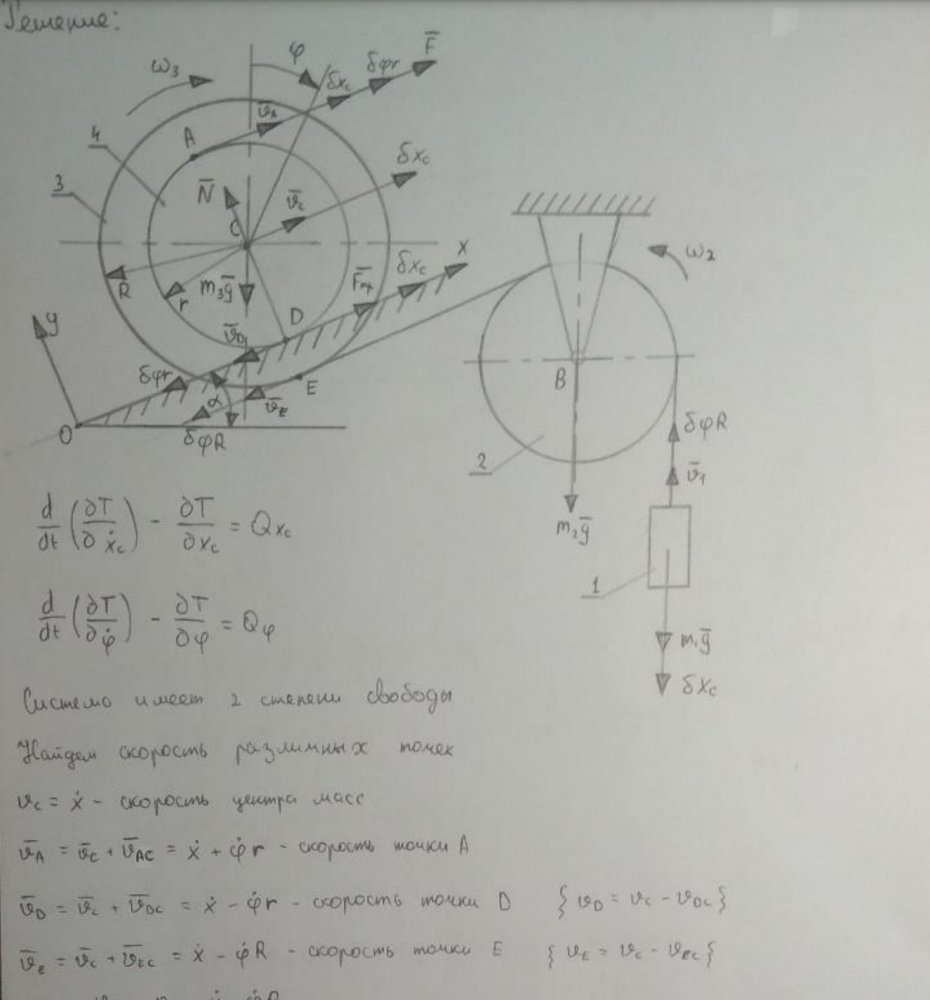 Решение:
ω₃
φ
δx_C
δφr
F̅
v̅_A
A
4
3
N̅
C
v̅_C
δx_C
R
r
m₃g̅
D
F̅_тр
δx_C
x
y
v̅_D
δφr
α
v̅_E
E
O
δφR
ω₂
B
2
m₂g̅
δφR
v̅₁
1
m₁g̅
δx_C
d/dt (∂T/∂ẋ_C) - ∂T/∂x_C = Q_{x_C}
d/dt (∂T/∂φ̇) - ∂T/∂φ = Q_φ
Система имеет 2 степени свободы
Найдем скорость различных точек
v_C = ẋ - скорость центра масс
v̅_A = v̅_C + v̅_AC = ẋ + φ̇r - скорость точки A
v̅_D = v̅_C + v̅_DC = ẋ - φ̇r - скорость точки D { v_D = v_C - v_DC }
v̅_E = v̅_C + v̅_EC = ẋ - φ̇R - скорость точки E { v_E = v_C - v_EC }